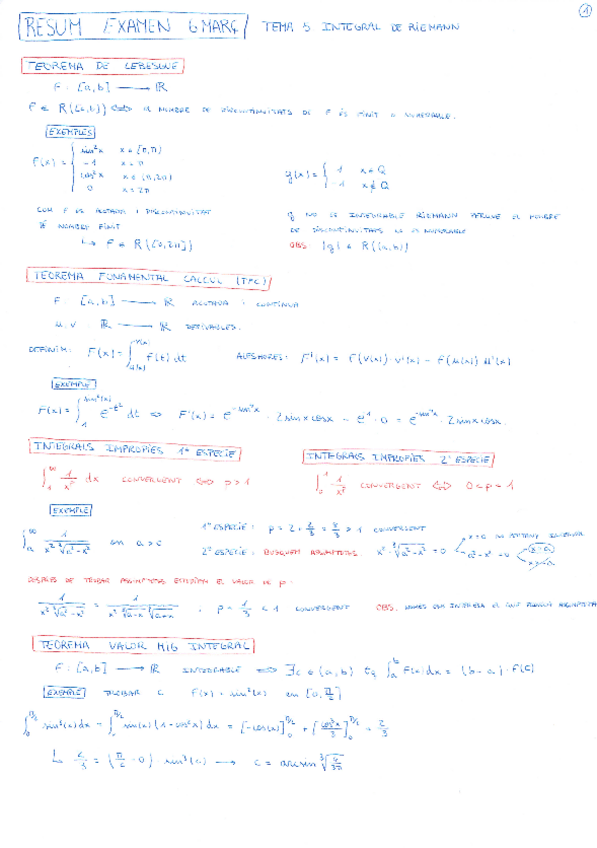 RESUM EXAMEN 6 MARÇ / TEMA 5 INTEGRAL DE RIEMANN 1
TEOREMA DE LEBESGUE
F: [a,b] → ℝ
F ∈ R([a,b]) ⇔ EL NOMBRE DE DISCONTINUITATS DE F ÉS FINIT O NUMERABLE.
EXEMPLES
F(x) = { sin²x x ∈ [0,π)
-1 x = π
cos²x x ∈ (π,2π)
0 x = 2π
g(x) = { 1 x ∈ Q
-1 x ∉ Q
COM F ES ACOTADA I DISCONTINUITAT
DE NOMBRE FINIT
↳ F ∈ R([0,2π])
g NO ES INTEGRABLE RIEMANN PERQUE EL NOMBRE
DE DISCONTINUITATS NO ES NUMERABLE
OBS: |g| ∈ R([a,b])
TEOREMA FONAMENTAL CALCUL (TFC)
F [a,b] → ℝ ACOTADA I CONTINUA
u, v : ℝ → ℝ DERIVABLES.
DEFINIM: F(x) = ∫_{u(x)}^{v(x)} f(t) dt ALESHORES: F'(x) = f(v(x)) · v'(x) - f(u(x)) u'(x)
EXEMPLE
F(x) = ∫_1^{sin²(x)} e^{-t²} dt ⇔ F'(x) = e^{-sin⁴x} · 2 sin x cos x - e^1 · 0 = e^{-sin⁴x} · 2 sin x cos x.
INTEGRALS IMPROPIES 1ª ESPECIE
INTEGRALS IMPROPIES 2ª ESPECIE
∫_1^∞ 1/x^p dx CONVERGENT ⇔ p > 1
∫_0^1 1/x^p CONVERGENT ⇔ 0 < p < 1
EXEMPLE
∫_a^∞ 1/(x² ∛(a²-x²)) on a > 0
1ª ESPECIE: p = 2 + 2/3 = 8/3 > 1 CONVERGENT
2ª ESPECIE: BUSQUEM ASIMPTOTES x² · ∛(a²-x²) = 0
a² - x² = 0
DESPRES DE TROBAR ASIMPTOTES ESTUDIEM EL VALOR DE p:
1/(x² ∛(a²-x²)) = 1/(x² ∛(a-x) ∛(a+x)) , p = 1/3 < 1 CONVERGENT OBS.
TEOREMA VALOR MIG INTEGRAL
F: [a,b] → ℝ INTEGRABLE ⇔ ∃c ∈ (a,b) tq ∫_a^b F(x) dx = (b-a) · F(c)
EXEMPLE TROBAR C F(x) = sin³(x) en [0, π/2]
∫_0^{π/2} sin³(x) dx = ∫_0^{π/2} sin(x) (1 - cos²x) dx = [-cos(x)]_0^{π/2} + [cos³x/3]_0^{π/2} = 2/3
↳ 2/3 = (π/2 - 0) · sin³(c) → c = arcsin ∛(4/3π)